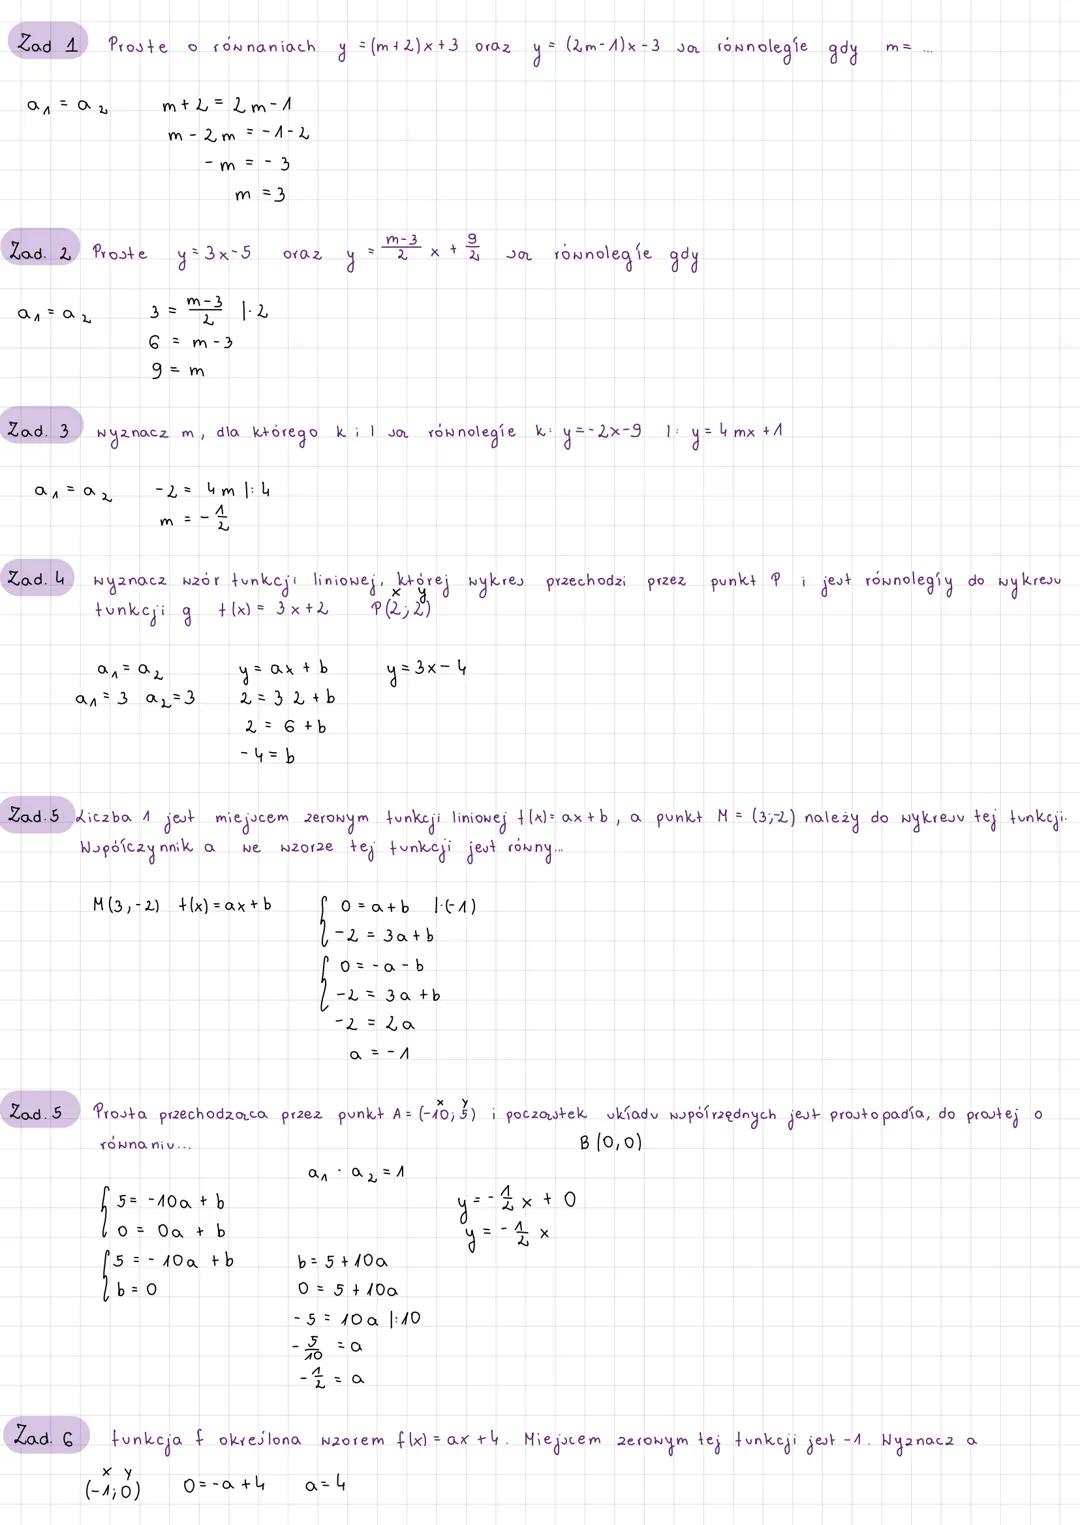 Zad 1 Proste o równaniach y = (m+2)x+3 oraz y = (2m-1)x-3 są równoległe gdy m= ...
a₁ = a₂ m+2 = 2m-1
m - 2m = -1-2
-m = -3
m = 3
Zad. 2 Proste y = 3x-5 oraz y = \frac{m-3}{2} x + \frac{9}{2} są równoległe gdy
a₁ = a₂ 3 = \frac{m-3}{2} |·2
6 = m-3
9 = m
Zad. 3 wyznacz m, dla którego k i l są równoległe k: y=-2x-9 l: y=4mx+1
a₁ = a₂ -2 = 4m |:4
m = -\frac{1}{2}
Zad. 4 wyznacz wzór funkcji liniowej, której wykres przechodzi przez punkt P i jest równoległy do wykresu
x y
funkcji g f(x) = 3x+2 P(2;2)
a₁ = a₂ y = ax + b y = 3x - 4
a₁ = 3 a₂ = 3 2 = 3 2 + b
2 = 6 + b
-4 = b
Zad. 5 Liczba 1 jest miejscem zerowym funkcji liniowej f(x) = ax+b, a punkt M = (3;-2) należy do wykresu tej funkcji.
Współczynnik a we wzorze tej funkcji jest równy...
M(3,-2) f(x) = ax+b { 0 = a+b |·(-1)
-2 = 3a+b
{ 0 = -a-b
-2 = 3a+b
-2 = 2a
a = -1
x y
Zad. 5 Prosta przechodząca przez punkt A = (-10; 5) i początek układu współrzędnych jest prostopadła, do prostej o
równaniu... B(0,0)
a₁ · a₂ = 1
{ 5 = -10a + b y = -\frac{1}{2}x + 0
0 = 0a + b y = -\frac{1}{2}x
{ 5 = -10a + b b = 5+10a
b = 0 0 = 5+10a
-5 = 10a |:10
-\frac{5}{10} = a
-\frac{1}{2} = a
Zad. 6 funkcja f określona wzorem f(x) = ax+4. Miejscem zerowym tej funkcji jest -1. Wyznacz a
x y
(-1;0) 0 = -a+4 a = 4